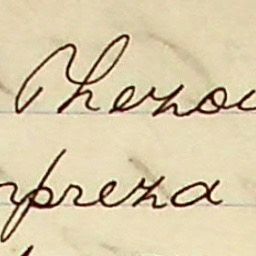 Thezou
mpreza